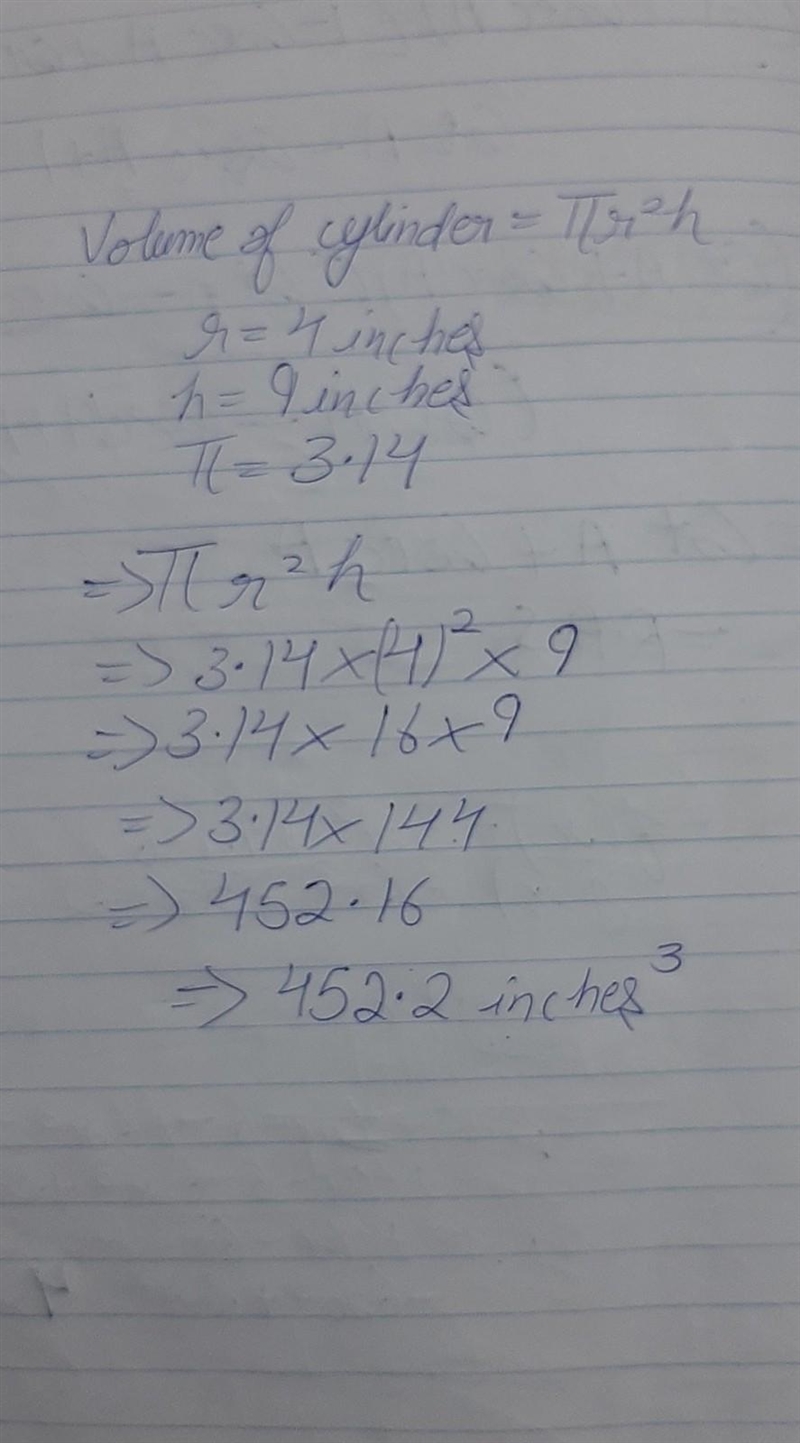 Volume of cylinder = πr²h
r = 4 inches
h = 9 inches
π = 3.14
=> πr²h
=> 3.14 × (4)² × 9
=> 3.14 × 16 × 9
=> 3.14 × 144
=> 452.16
=> 452.2 inches³